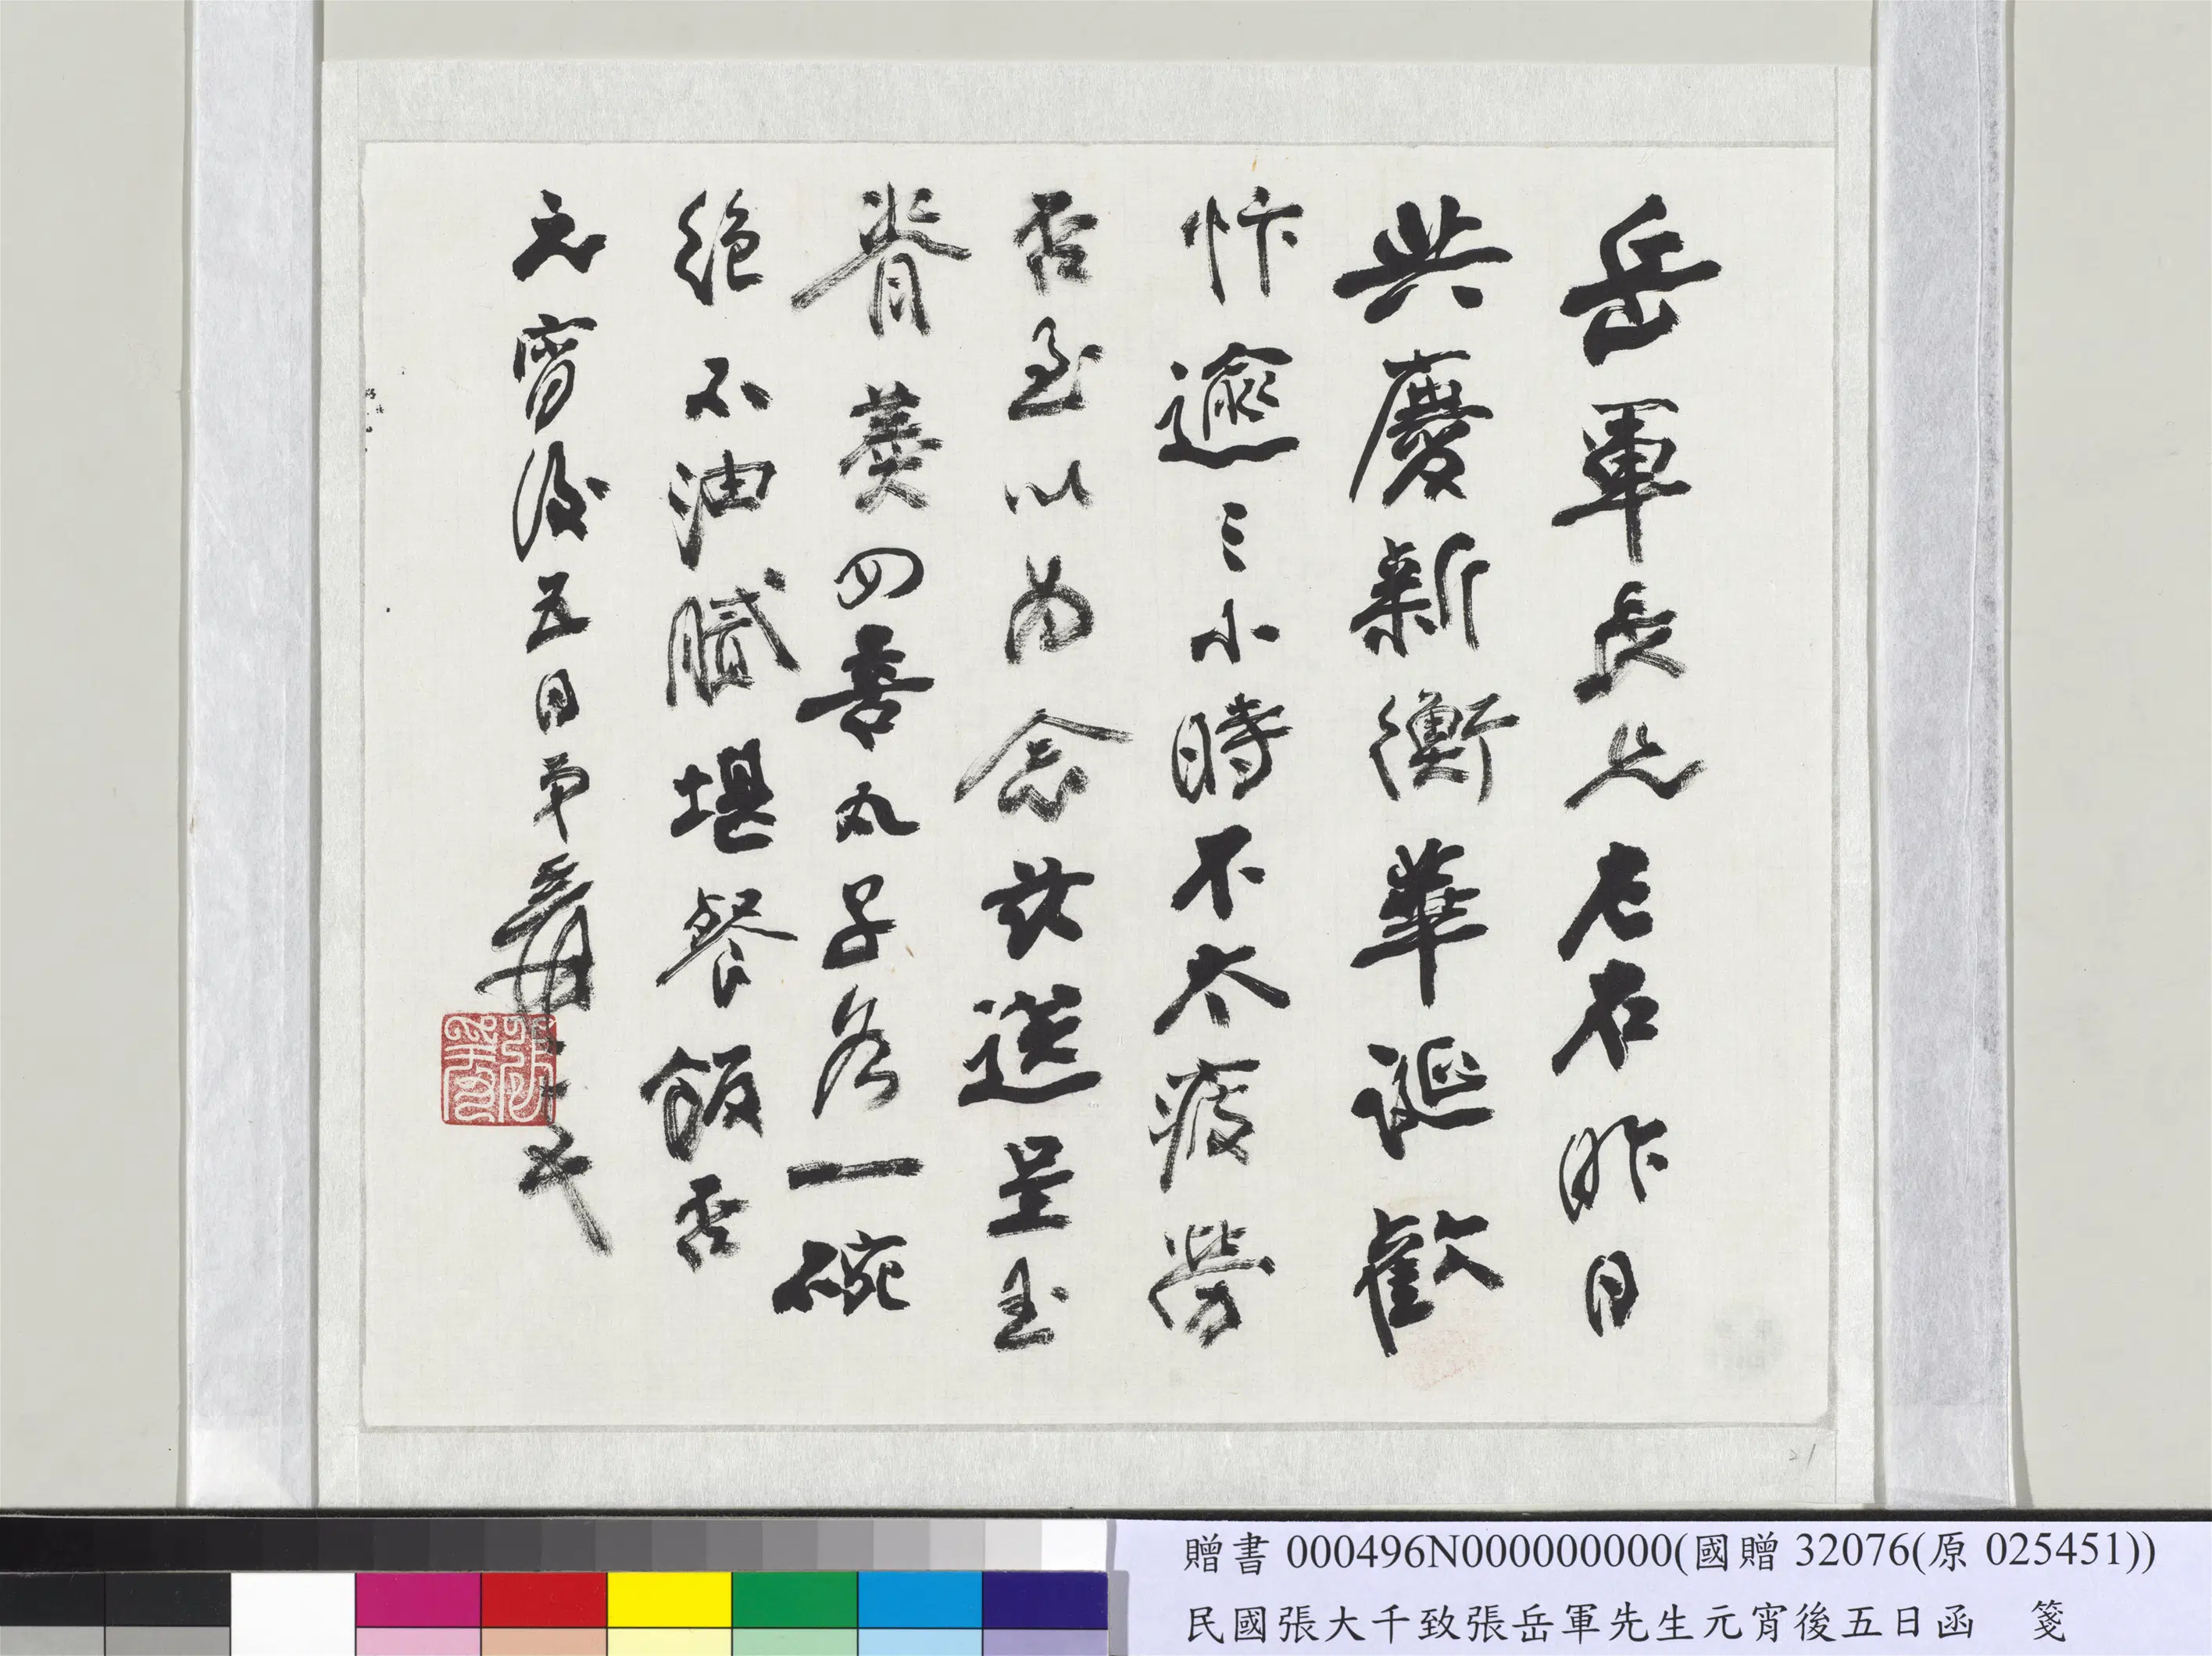 岳軍長兄左右昨日
共慶新衡華誕歡
忭逾三小時不太疲勞
否至以為念茲送呈玉
脊羹四喜丸子各一碗
絕不油膩堪餐飯否
元宵後五日弟爰
贈書 000496N000000000(國贈 32076(原 025451))
民國張大千致張岳軍先生元宵後五日函 箋
21